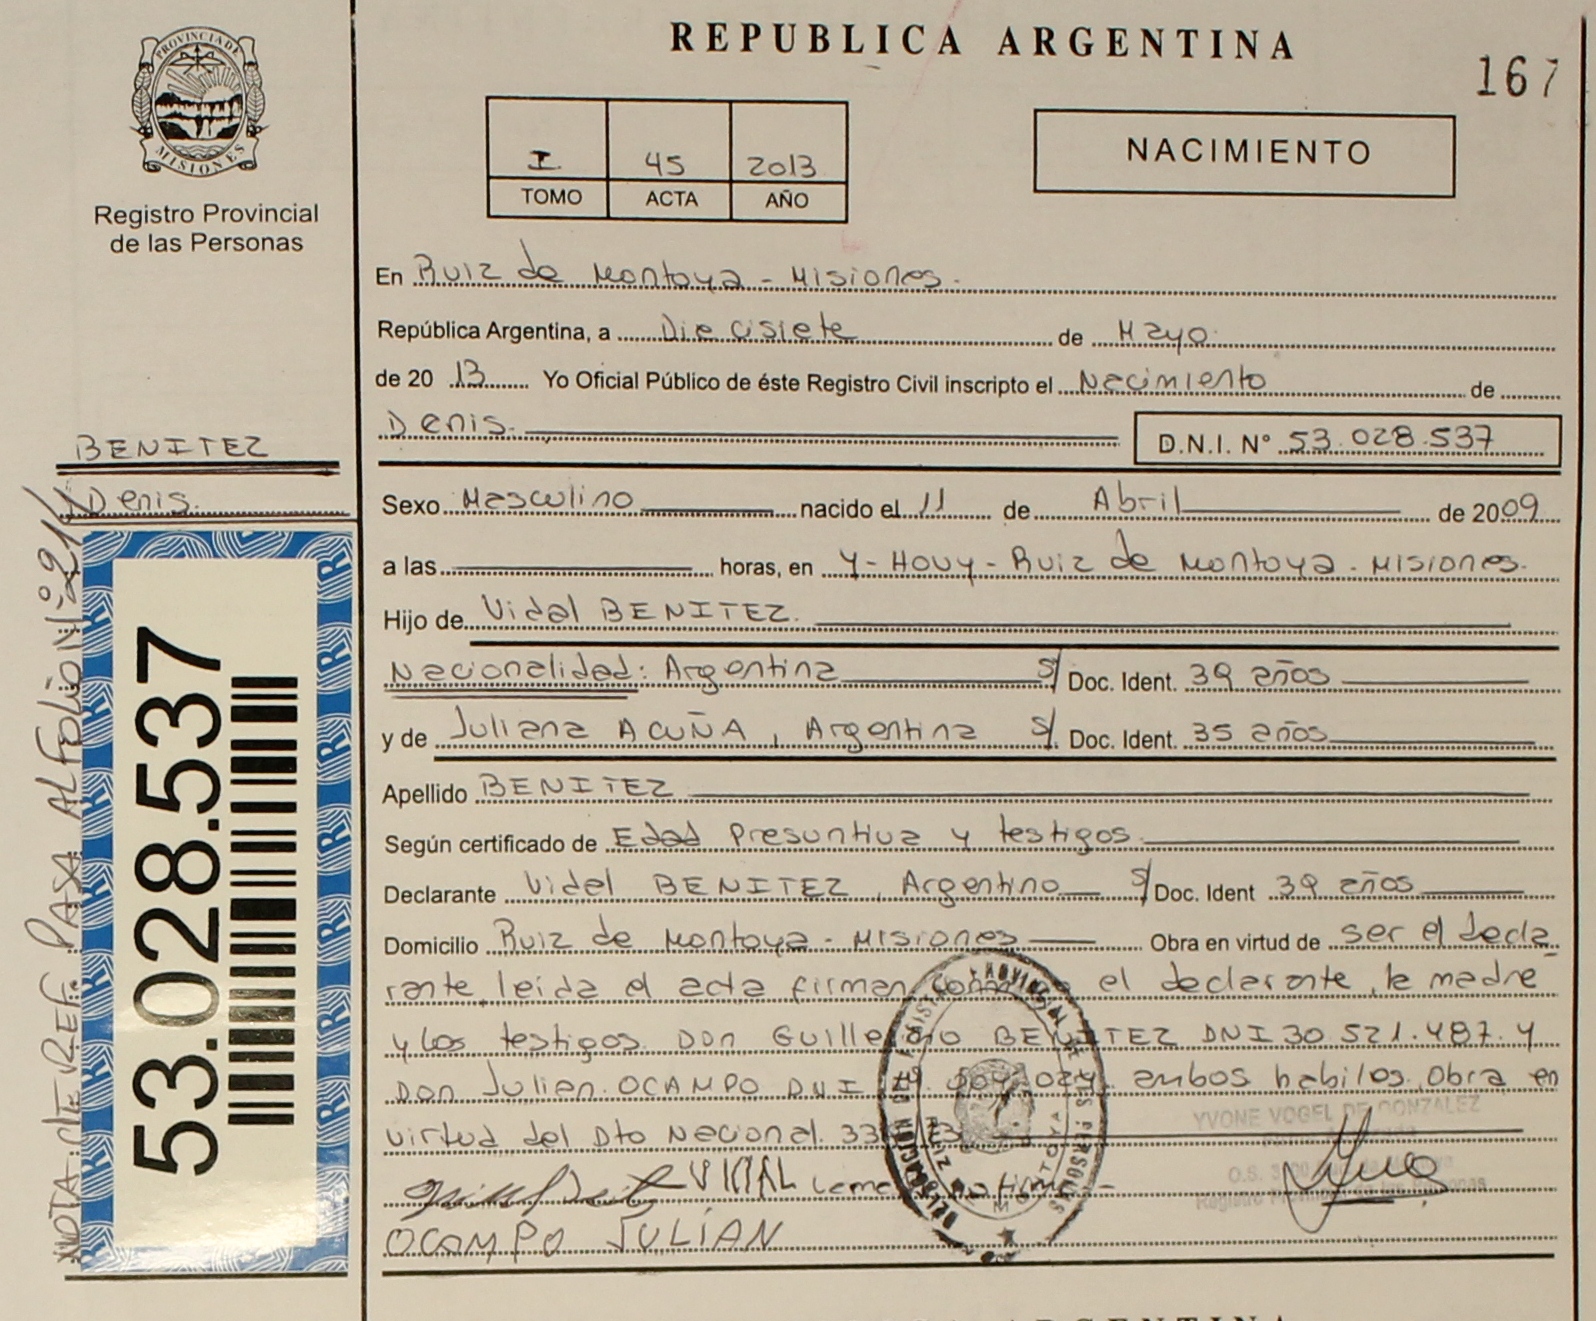 REPUBLICA ARGENTINA
167
PROVINCIA DE
MISIONES
Registro Provincial
de las Personas
I 45 2013
TOMO ACTA AÑO
NACIMIENTO
En Ruiz de Montoya - Misiones.
República Argentina, a Diecisiete de Mayo
de 20 13 Yo Oficial Público de éste Registro Civil inscripto el Nacimiento de
Denis. D.N.I. N° 53.028.537
BENITEZ
Denis.
Sexo Masculino nacido el 11 de Abril de 2009
a las horas, en Y-Hovy - Ruiz de Montoya - Misiones.
Hijo de Vidal BENITEZ.
Nacionalidad: Argentina S/ Doc. Ident. 39 años
y de Juliana ACUÑA, Argentina S/ Doc. Ident. 35 años
Apellido BENITEZ
Según certificado de Edad Presuntiva y testigos.
Declarante Vidal BENITEZ, Argentino S/ Doc. Ident 39 años
Domicilio Ruiz de Montoya - Misiones Obra en virtud de ser el decla
rante, leida el acta firman el declarante, la madre
y los testigos Don Guillermo BENITEZ DNI 30.521.487 y
Don Julian OCAMPO DNI ambos habiles. Obra en
virtud del Dto Nacional.
VIDAL
OCAMPO JULIAN
YVONE VOGEL DE GONZALEZ
53.028.537
NOTA: DE REF. PASA AL FOLIO N°